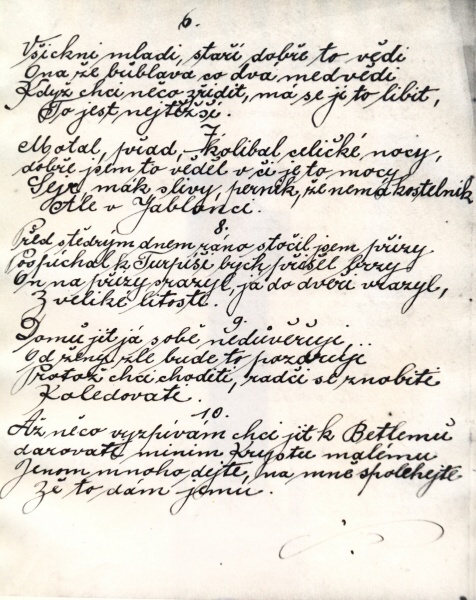 6.
Všickni mladi, staří dobře to vědi
Ona že bublava co dva medvědi
Když chci něco zřídit, má se ji to libit,
To jest nejtěžší.
7.
Motal, přiad, kolibal celičké nocy,
dobře jsem to věděl v či je to mocy
Sejr, mák slivy, pernik, že nema kostelnik
Ale v Jablonci.
8.
Před stědrym dnem rano stočil jsem přizy
Pospichal k Turpiši bych přišel brzy
On na přizy srazyl, já do dveři vrazyl,
Z veliké litosti.
9.
Domu jit já sobě nedůvěřuji,
od ženy zle bude to pozoruji
Protož chci choditi, radči se znobiti
Koledovati.
10.
Až něco vyzpívám chci jit k Betlemu
darovati minim Krystu malému
Jenom mnoho dejte, na mně spolehejte
Že to dám jemu.